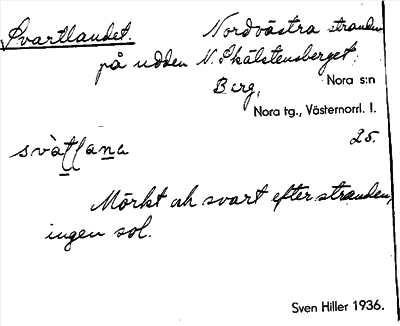 Svartlandet. Nordvästra stranden
på udden N. Skälstensberget.
Berg, Nora s:n
Nora tg., Västernorrl. l.
25.
svàtlana
Mörkt och svart efter stranden,
ingen sol.
Sven Hiller 1936.